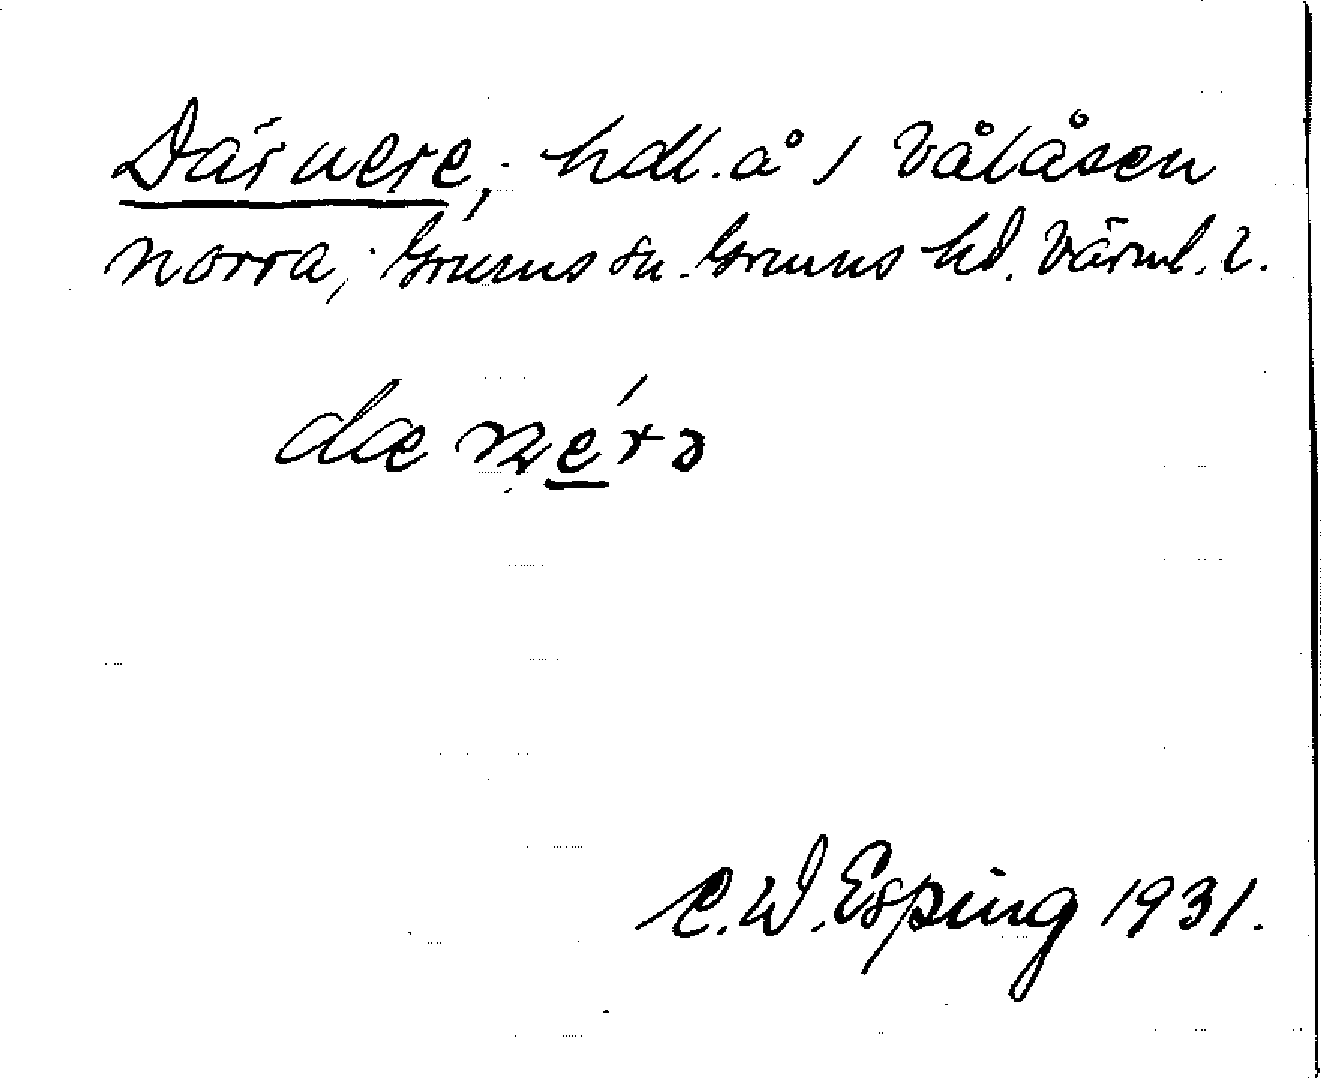 Därnere, hdl. å 1 Vålåsen
norra, Grums sn. Grums hd. Värml. l.
dæ nérə
C.W. Esping 1931.